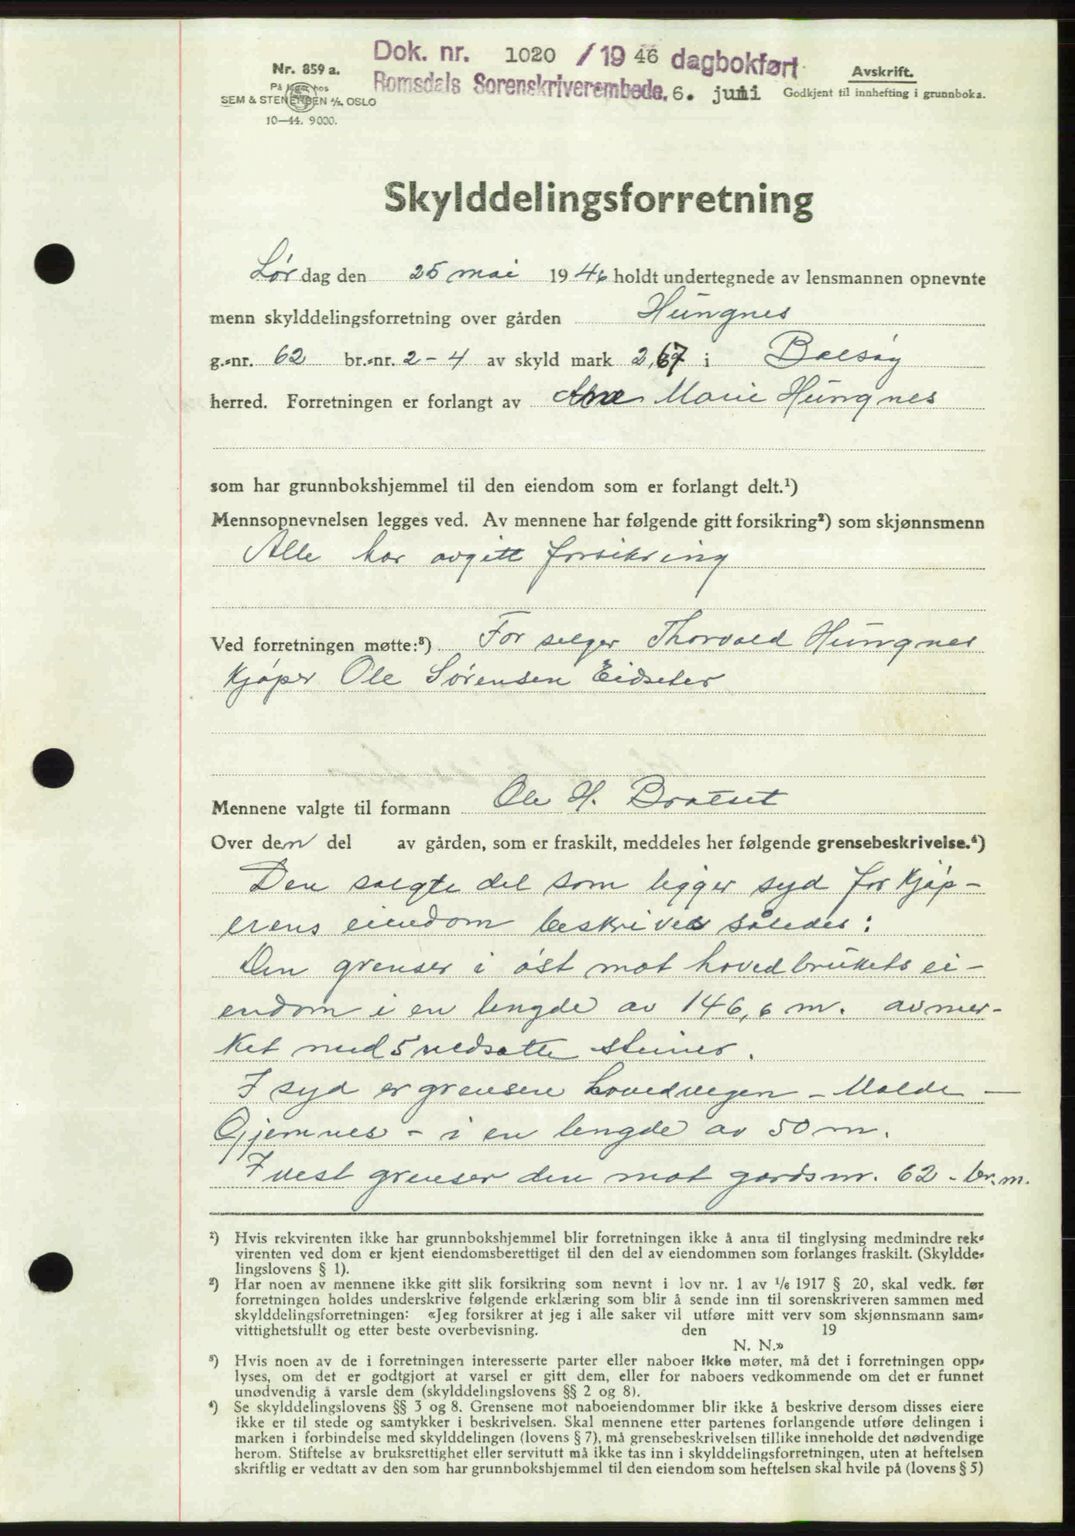 Dok. nr. 1020 / 1946 dagbokført
Romsdals Sorenskriverembede, 6. juni
Nr. 859 a.
På lager hos
SEM & STENERSEN A/S, OSLO
10—44. 9000.
Avskrift.
Godkjent til innhefting i grunnboka.
Skylddelingsforretning
Lør dag den 25 mai 1946 holdt undertegnede av lensmannen opnevnte
menn skylddelingsforretning over gården Hungnes
g.-nr. 62 br.-nr. 2-4 av skyld mark 2,67 i Bolsøy
herred. Forretningen er forlangt av Ane Marie Hungnes
som har grunnbokshjemmel til den eiendom som er forlangt delt.¹)
Mennsopnevnelsen legges ved. Av mennene har følgende gitt forsikring²) som skjønnsmenn
Alle har avgitt forsikring
Ved forretningen møtte:³) For selger Thorvald Hungnes
Kjøper Ole Sørensen Eidseter
Mennene valgte til formann Ole H. Bratset
Over den del av gården, som er fraskilt, meddeles her følgende grensebeskrivelse.⁴)
Den solgte del som ligger syd for Kjøp-
erens eiendom beskrives således:
Den grenser i øst mot hovedbrukets ei-
endom i en lengde av 146,6 m. avmer-
ket med 5 nedsatte steiner.
I syd er grensen hovedvegen - Molde —
Gjemnes - i en lengde av 50 m.
I vest grenser den mot gardsnr. 62 - br.nr.
¹) Hvis rekvirenten ikke har grunnbokshjemmel blir forretningen ikke å anta til tinglysing medmindre rek-
virenten ved dom er kjent eiendomsberettiget til den del av eiendommen som forlanges fraskilt. (Skyldde-
lingslovens § 1).
²) Har noen av mennene ikke gitt slik forsikring som nevnt i lov nr. 1 av 1/6 1917 § 20, skal vedk. før
forretningen holdes underskrive følgende erklæring som blir å sende inn til sorenskriveren sammen med
skylddelingsforretningen: «Jeg forsikrer at jeg i alle saker vil utføre mitt verv som skjønnsmann sam-
vittighetsfullt og etter beste overbevisning. den 19
N. N.»
³) Hvis noen av de i forretningen interesserte parter eller naboer ikke møter, må det i forretningen opp-
lyses, om det er godtgjort at varsel er gitt dem, eller for naboers vedkommende om det er funnet
unødvendig å varsle dem (skylddelingslovens §§ 2 og 8).
⁴) Se skylddelingslovens §§ 3 og 8. Grensene mot naboeiendommer blir ikke å beskrive dersom disses eiere
ikke er til stede og samtykker i beskrivelsen. Skal mennene etter partenes forlangende utføre delingen i
marken i forbindelse med skylddelingen (lovens § 7), må grensebeskrivelsen tillike inneholde det nødvendige
herom. Stiftelse av bruksrettighet eller servitutt må ikke tas inn i skylddelingsforretningen, uten at heftelsen
skriftlig er vedtatt av den som har grunnbokshjemmel til den eiendom som heftelsen skal hvile på (lovens § 5)